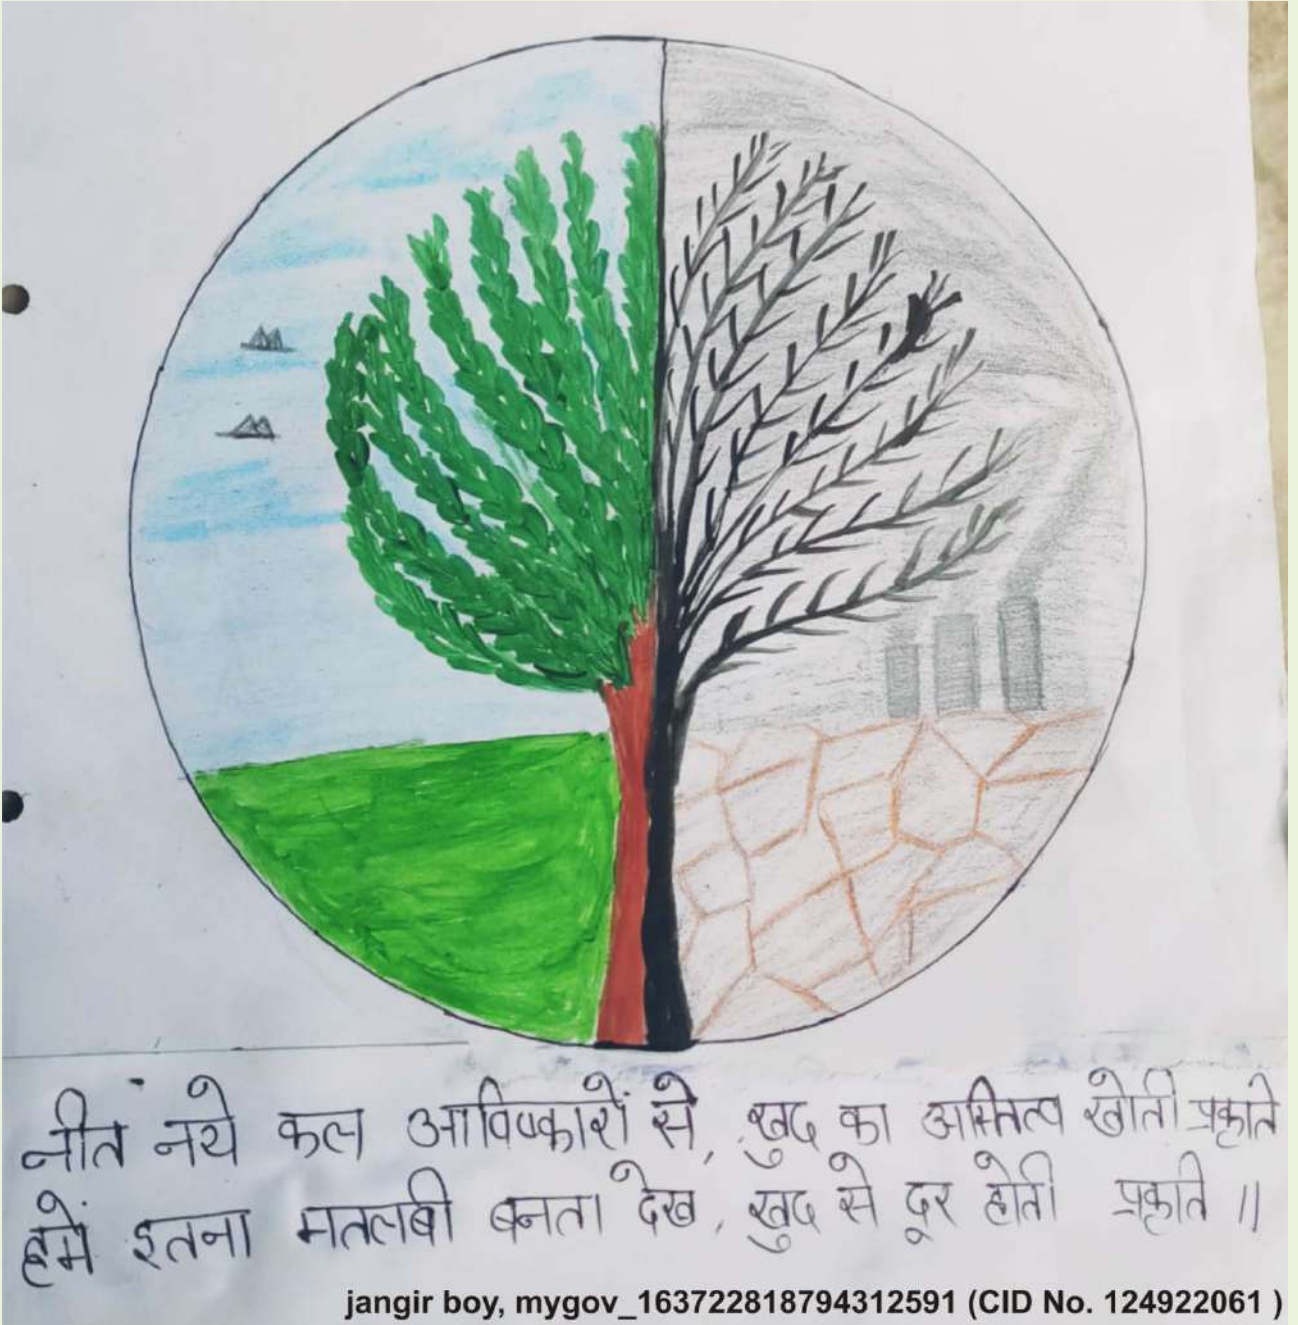 नीत नये कल आविष्कारों से, खुद का अस्तित्व खोती प्रकृति
हमें इतना मतलबी बनता देख, खुद से दूर होती प्रकृति ॥
jangir boy, mygov_163722818794312591 (CID No. 124922061 )